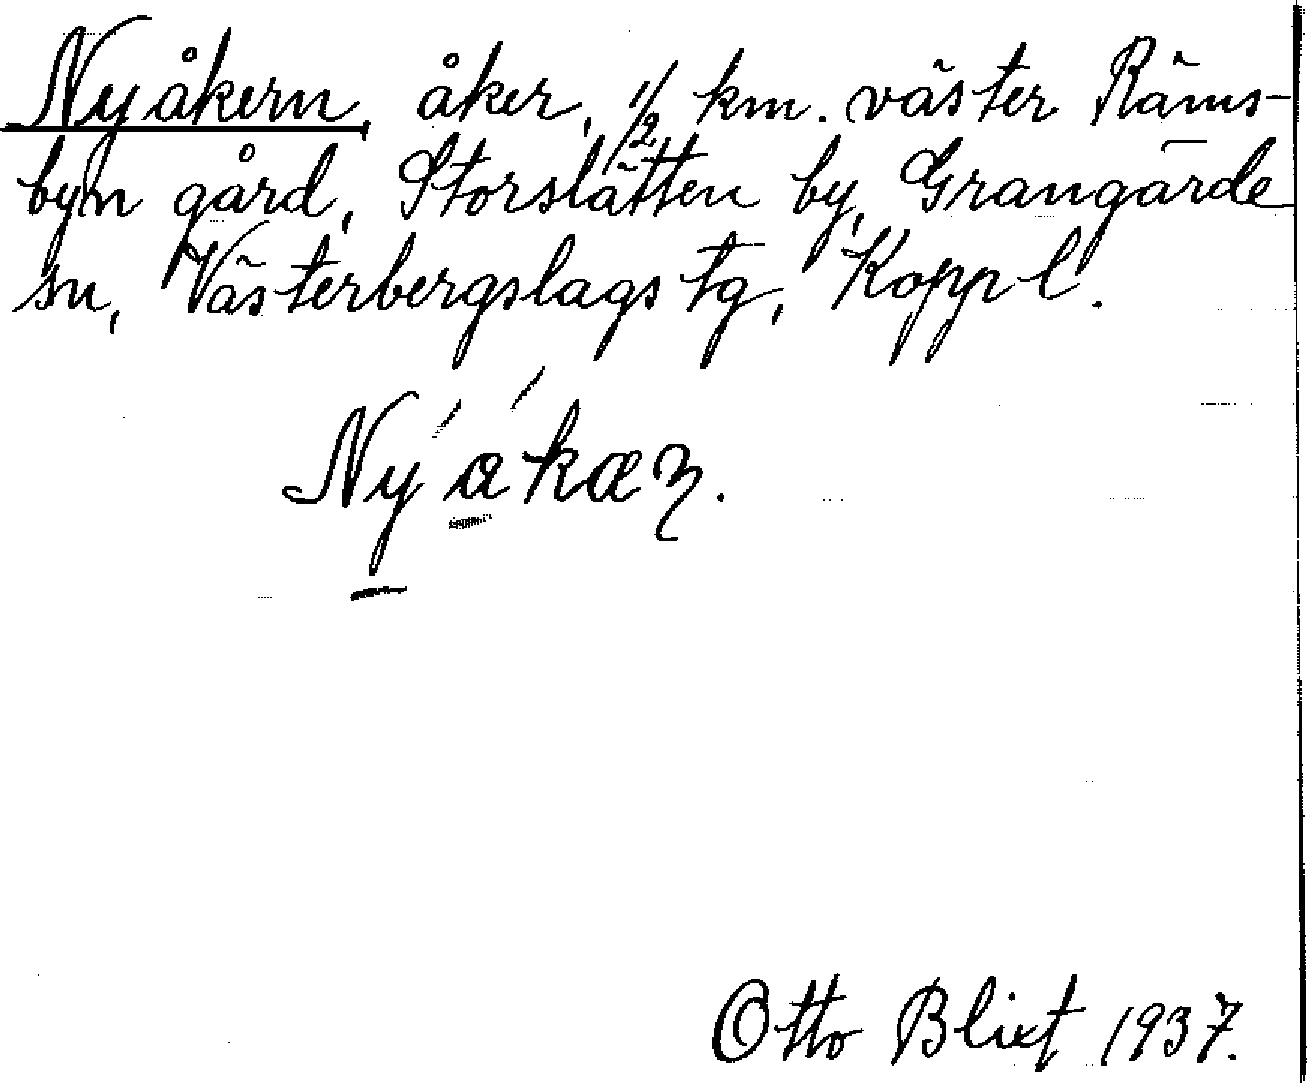 Nyåkern, åker, 1/2 km. väster Räms-
byn gård, Storslätten by, Grangärde
sn, Västerbergslags tg, Kopp l.
Ny´a´kæꞃ.
Otto Blixt 1937.